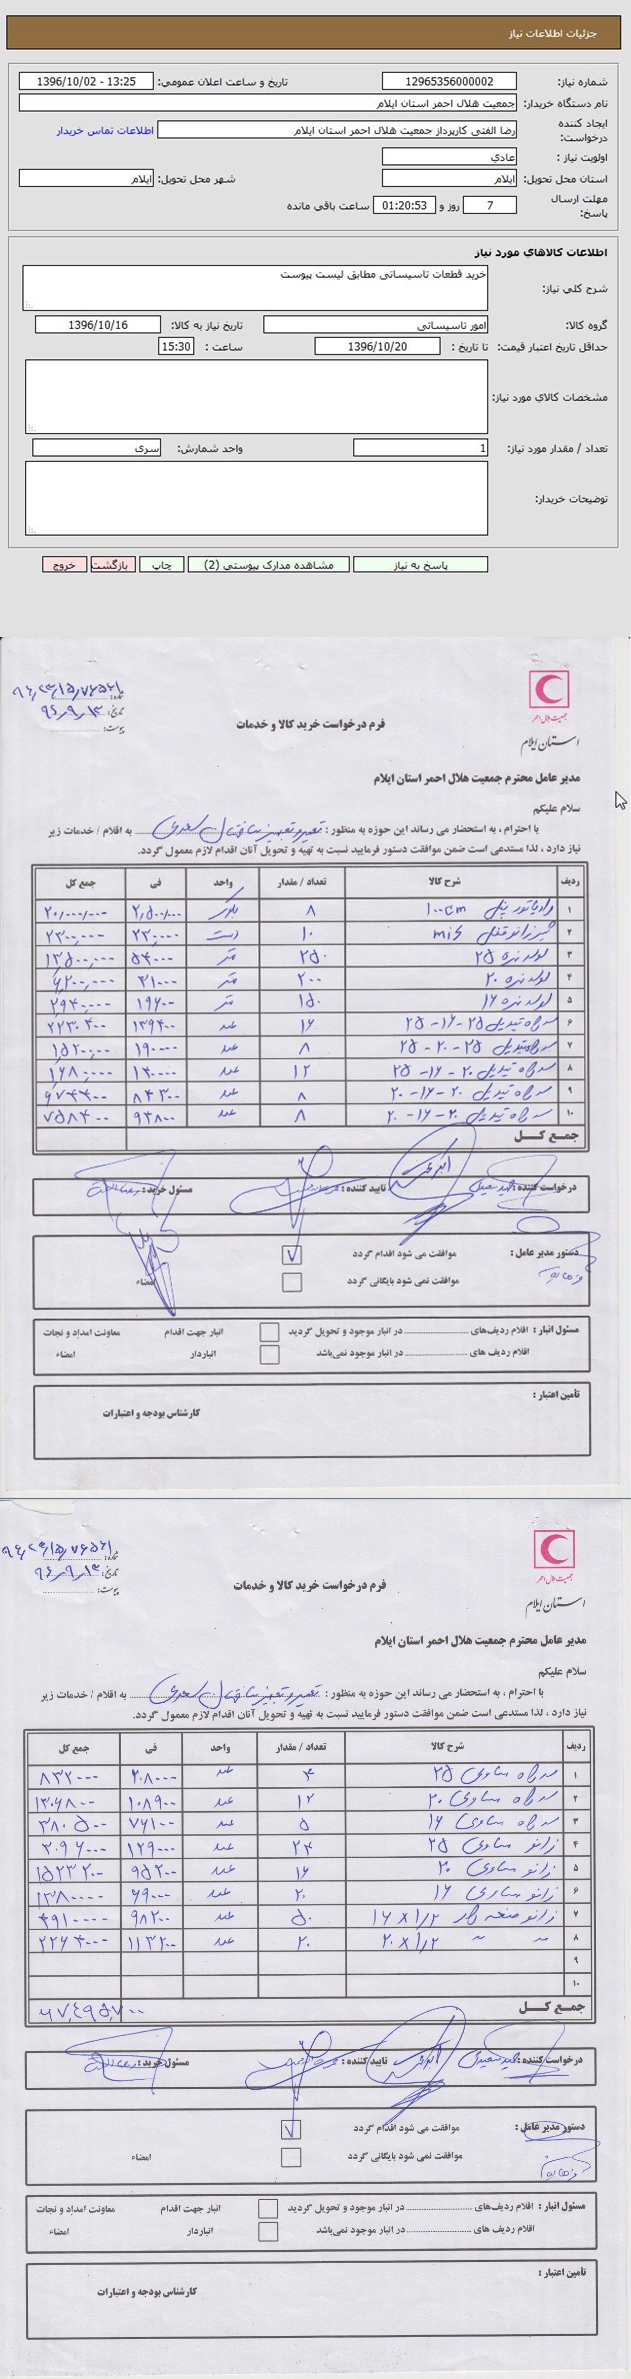 جزئیات اطلاعات نیاز
شماره نیاز: 12965356000002 تاریخ و ساعت اعلان عمومی: 1396/10/02 - 13:25
نام دستگاه خریدار: جمعیت هلال احمر استان ایلام
ایجاد کننده درخواست: رضا الفتی کارپرداز جمعیت هلال احمر استان ایلام اطلاعات تماس خریدار
اولویت نیاز : عادی
استان محل تحویل: ایلام شهر محل تحویل: ایلام
مهلت ارسال پاسخ: 7 روز و 01:20:53 ساعت باقی مانده
اطلاعات کالاهای مورد نیاز
شرح کلی نیاز: خرید قطعات تاسیساتی مطابق لیست پیوست
گروه کالا: امور تاسیساتی تاریخ نیاز به کالا: 1396/10/16
حداقل تاریخ اعتبار قیمت: تا تاریخ : 1396/10/20 ساعت : 15:30
مشخصات کالای مورد نیاز:
تعداد / مقدار مورد نیاز: 1 واحد شمارش: سری
توضیحات خریدار:
پاسخ به نیاز مشاهده مدارک پیوستی (2) چاپ بازگشت خروج
جمعیت هلال احمر
استان ایلام
شماره:
تاریخ: ۹۶٫۹٫۱۳
پیوست:
فرم درخواست خرید کالا و خدمات
مدیر عامل محترم جمعیت هلال احمر استان ایلام
سلام علیکم
با احترام ، به استحضار می رساند این حوزه به منظور : تعمیر و تجهیز ساختمان سعدی به اقلام / خدمات زیر
نیاز دارد ، لذا مستدعی است ضمن موافقت دستور فرمایید نسبت به تهیه و تحویل آنان اقدام لازم معمول گردد.
ردیف شرح کالا تعداد / مقدار واحد فی جمع کل
۱ رادیاتور پنل ۱۰۰cm ۸ ۲,۵۰۰/۰۰۰ ۲۰/۰۰۰/۰۰۰
۲ شیر زانو قفلی mis ۱۰ دست ۲۳۰۰۰۰ ۲۳۰۰۰۰۰
۳ لوله نره ۲۵ ۲۵۰ متر ۵۴۰۰۰ ۱۳۵۰۰٫۰۰۰
۴ لوله نره ۲۰ ۲۰۰ متر ۳۱۰۰۰ ۶٫۲۰۰٫۰۰۰
۵ لوله نره ۱۶ ۱۵۰ متر ۱۹۶۰۰ ۲۹۴۰۰۰۰
۶ سه راه تبدیل ۲۵-۱۶-۲۵ ۱۶ عدد ۱۳۹۴۰۰ ۲۲۳۰۴۰۰
۷ سه راه تبدیل ۲۵-۲۰-۲۵ ۸ عدد ۱۹۰۰۰۰ ۱٫۵۲۰٫۰۰۰
۸ سه راه تبدیل ۲۰-۱۶-۲۵ ۱۲ عدد ۱۴۰۰۰۰ ۱٫۶۸۰٫۰۰۰
۹ سه راه تبدیل ۲۰-۱۶-۲۰ ۸ عدد ۸۴۳۰۰ ۶۷۴۴۰۰
۱۰ سه راه تبدیل ۲۰-۱۶-۲۰ ۸ عدد ۹۴۸۰۰ ۷۵۸۴۰۰
جمع کل
درخواست کننده : تایید کننده : مسئول خرید :
دستور مدیر عامل : موافقت می شود اقدام گردد
موافقت نمی شود بایگانی گردد امضاء
مسئول انبار : اقلام ردیف‌های در انبار موجود و تحویل گردید انبار جهت اقدام معاونت امداد و نجات
اقلام ردیف های در انبار موجود نمی‌باشد انباردار امضاء
تأمین اعتبار :
کارشناس بودجه و اعتبارات
جمعیت هلال احمر
استان ایلام
شماره:
تاریخ: ۹۶٫۹٫۱۳
پیوست:
فرم درخواست خرید کالا و خدمات
مدیر عامل محترم جمعیت هلال احمر استان ایلام
سلام علیکم
با احترام ، به استحضار می رساند این حوزه به منظور : تعمیر و تجهیز ساختمان سعدی به اقلام / خدمات زیر
نیاز دارد ، لذا مستدعی است ضمن موافقت دستور فرمایید نسبت به تهیه و تحویل آنان اقدام لازم معمول گردد.
ردیف شرح کالا تعداد / مقدار واحد فی جمع کل
۱ سه راه مساوی ۲۵ ۴ عدد ۲۰۸۰۰۰ ۸۳۲۰۰۰
۲ سه راه مساوی ۲۰ ۱۲ عدد ۱۰۸۹۰۰ ۱۳۰۶۸۰۰
۳ سه راه مساوی ۱۶ ۵ عدد ۷۶۱۰۰ ۳۸۰۵۰۰
۴ زانو مساوی ۲۵ ۲۴ عدد ۱۲۹۰۰۰ ۳۰۹۶۰۰۰
۵ زانو مساوی ۲۰ ۱۶ عدد ۹۵۲۰۰ ۱۵۲۳۲۰۰
۶ زانو مساوی ۱۶ ۲۰ عدد ۶۹۰۰۰ ۱۳۸۰۰۰۰
۷ زانو صفحه دار ۱/۲ × ۱۶ ۵۰ عدد ۹۸۲۰۰ ۴۹۱۰۰۰۰
۸ " " ۱/۲ × ۲۰ ۲۰ عدد ۱۱۳۲۰۰ ۲۲۶۴۰۰۰
۹
۱۰
جمع کل ۶۷٫۴۹۵٫۷۰۰
درخواست کننده : تایید کننده : مسئول خرید :
دستور مدیر عامل : موافقت می شود اقدام گردد
موافقت نمی شود بایگانی گردد امضاء
مسئول انبار : اقلام ردیف‌های در انبار موجود و تحویل گردید انبار جهت اقدام معاونت امداد و نجات
اقلام ردیف های در انبار موجود نمی‌باشد انباردار امضاء
تأمین اعتبار :
کارشناس بودجه و اعتبارات